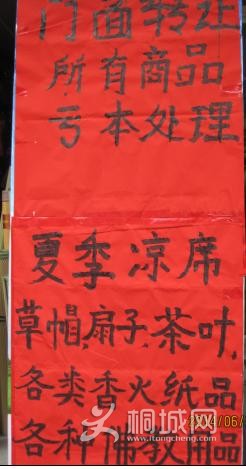 门面转让
所有商品
亏本处理
夏季凉席
草帽扇子.茶叶,
各类香火纸品
各种佛教用品
桐城网
www.itongcheng.com